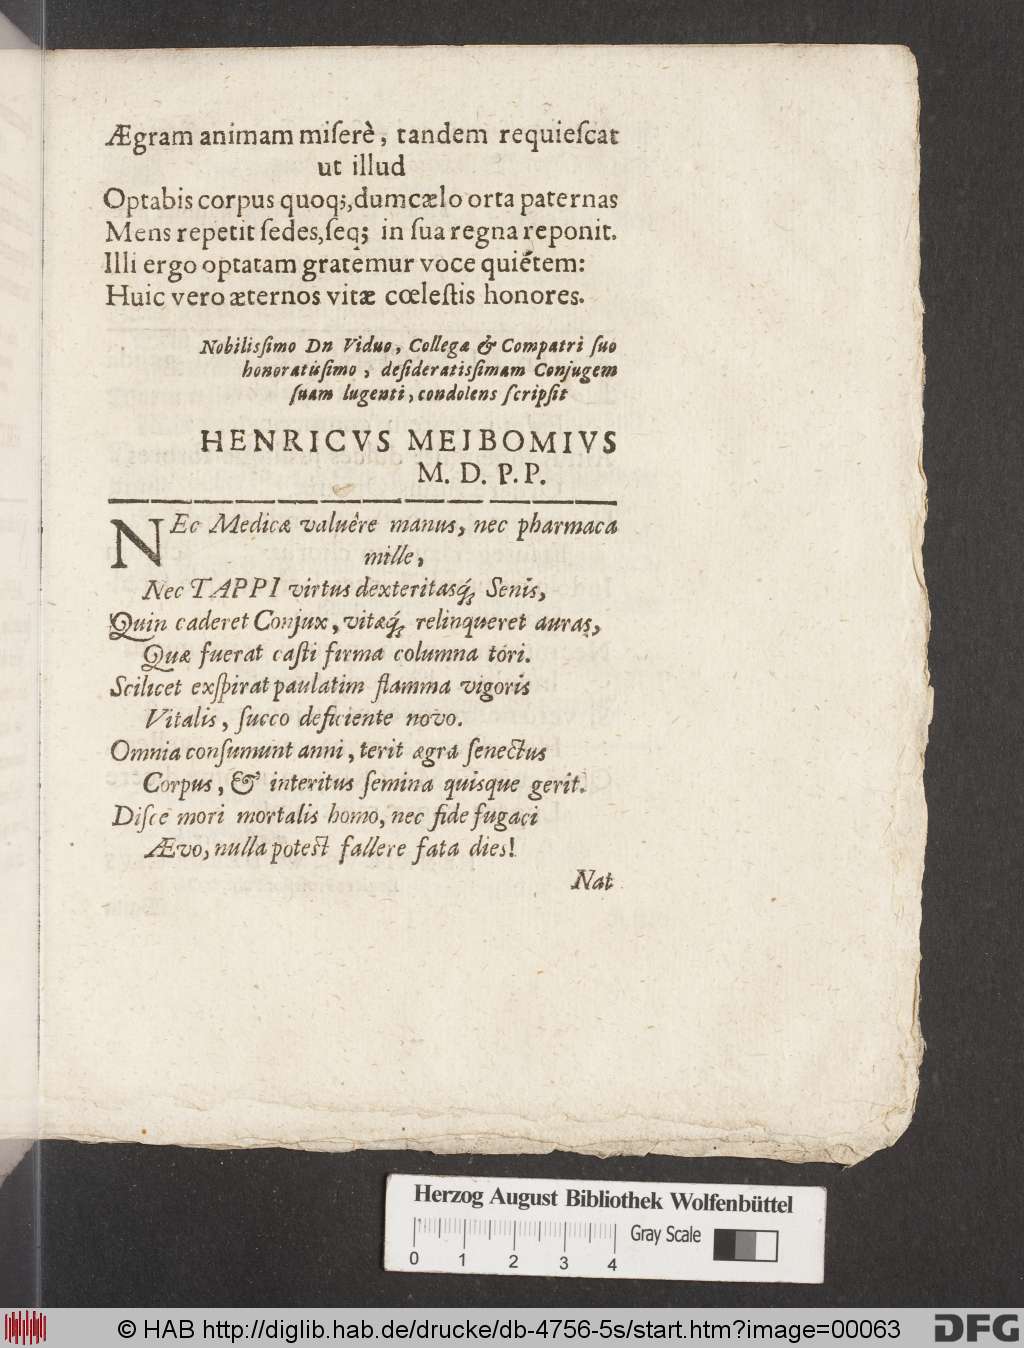 Ægram animam miserè, tandem requieſcat
ut illud
Optabis corpus quoq;, dum cælo orta paternas
Mens repetit ſedes, ſeq; in ſua regna reponit.
Illi ergo optatam gratemur voce quiétem:
Huic vero æternos vitæ cœleſtis honores.
Nobiliſſimo Dn Viduo, Collegæ & Compatri ſuo
honoratiſſimo, deſideratiſſimam Conjugem
ſuam lugenti, condolens ſcripſit
HENRICVS MEJBOMIVS
M. D. P. P.
NEc Medicæ valuêre manus, nec pharmaca
mille,
Nec TAPPI virtus dexteritasq́; Senis,
Quin caderet Conjux, vitæq́; relinqueret auras,
Quæ fuerat caſti firma columna tori.
Scilicet exſpirat paulatim flamma vigoris
Vitalis, ſucco deficiente novo.
Omnia conſumunt anni, terit ægra ſenectus
Corpus, & interitus ſemina quisque gerit.
Diſce mori mortalis homo, nec fide fugaci
Ævo, nulla potest fallere fata dies!
Nat
Herzog August Bibliothek Wolfenbüttel
Gray Scale
0 1 2 3 4
© HAB http://diglib.hab.de/drucke/db-4756-5s/start.htm?image=00063
DFG